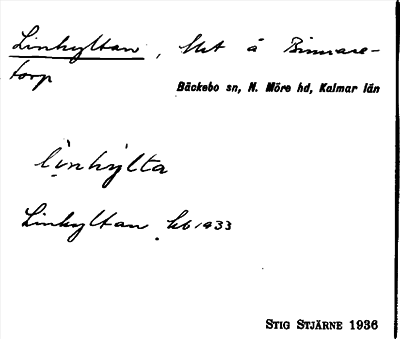 Linhyltan, lht å Binnare-
torp
Bäckebo sn, N. Möre hd, Kalmar län
li̬nhỳlta
Linhyltan hb 1933
STIG STJÄRNE 1936